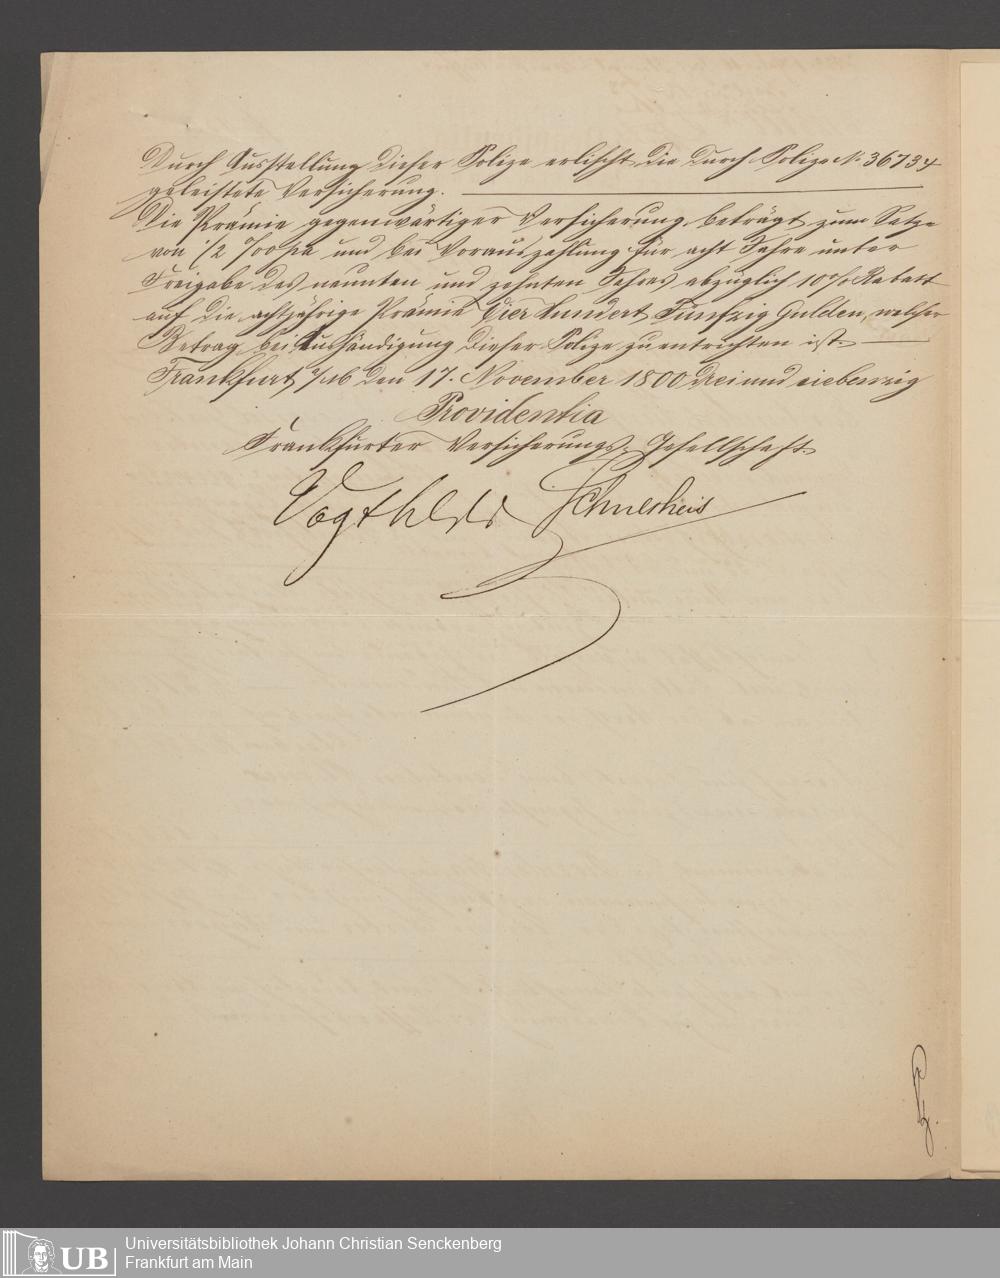 Durch Ausstellung dieser Polize erlischt die durch Polize No 36734
geleistete Versicherung.
Die Prämie gegenwärtiger Versicherung beträgt zum Satze
von 1/2 ‰ pa und bei Vorauszahlung für acht Jahre unter
Freigabe des neunten und zehnten Jahres abzüglich 10% Rabatt
auf die achtjährige Prämie Vier hundert Fünfzig Gulden, welcher
Betrag bei Aushändigung dieser Polize zu entrichten ist.
Frankfurt a/M den 17. November 1800 drei und siebenzig
Providentia
Frankfurter Versicherungs-Gesellschaft.
Universitätsbibliothek Johann Christian Senckenberg
Frankfurt am Main
UB